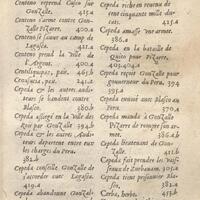 Centeno reprend Cusco sur
Gonzalle. 45.a
Centeno s'arme contre Gon-
zalle Pizarre. 400.a
Centeno se sauve au camp de
Lagasca. 401.a
Centeno prend la Ville de
l'Argent. 400.a
Centiliquipac, paix. 463.b
Ceniasica, paix. 441.b
Cepeda & les autres audi-
teurs se bandent contre
Blasco. 380.b
Cepeda assiegé en la ville des
Roy par Gonzalle 394.b
Cepeda & les autres Audi-
teurs departent entre eux
les charges du Peru.
382.b
Cepeda conseille Gonzalle de
s'accorder avec Lagasca.
419.a
Cepeda abandonne Gonzal-
Cepeda riche en rente de
cent cinquante mille du-
cats. 425.a
Cepeda amasse une armee.
386.a
Cepeda en la bataille de
Quito pour Pizarre.
403.404.a
Cepeda reçoit Gonzalle pour
gouverneur du Peru. 394.
395.a
Cepeda envoyé avec blasco au
Peru. 377.a
Cepeda manda à Gonzalle
Pizarre de rompre son ar-
mee. 386.b
Cepeda lieutenant de Gon-
zalle. 401.b
Cepeda fait prendre les Vais-
seaux de Zurbanan. 390.a
Cepeda tient prisonnier Bla-
sco. 381.a
Cerbs, herbe. 453.b